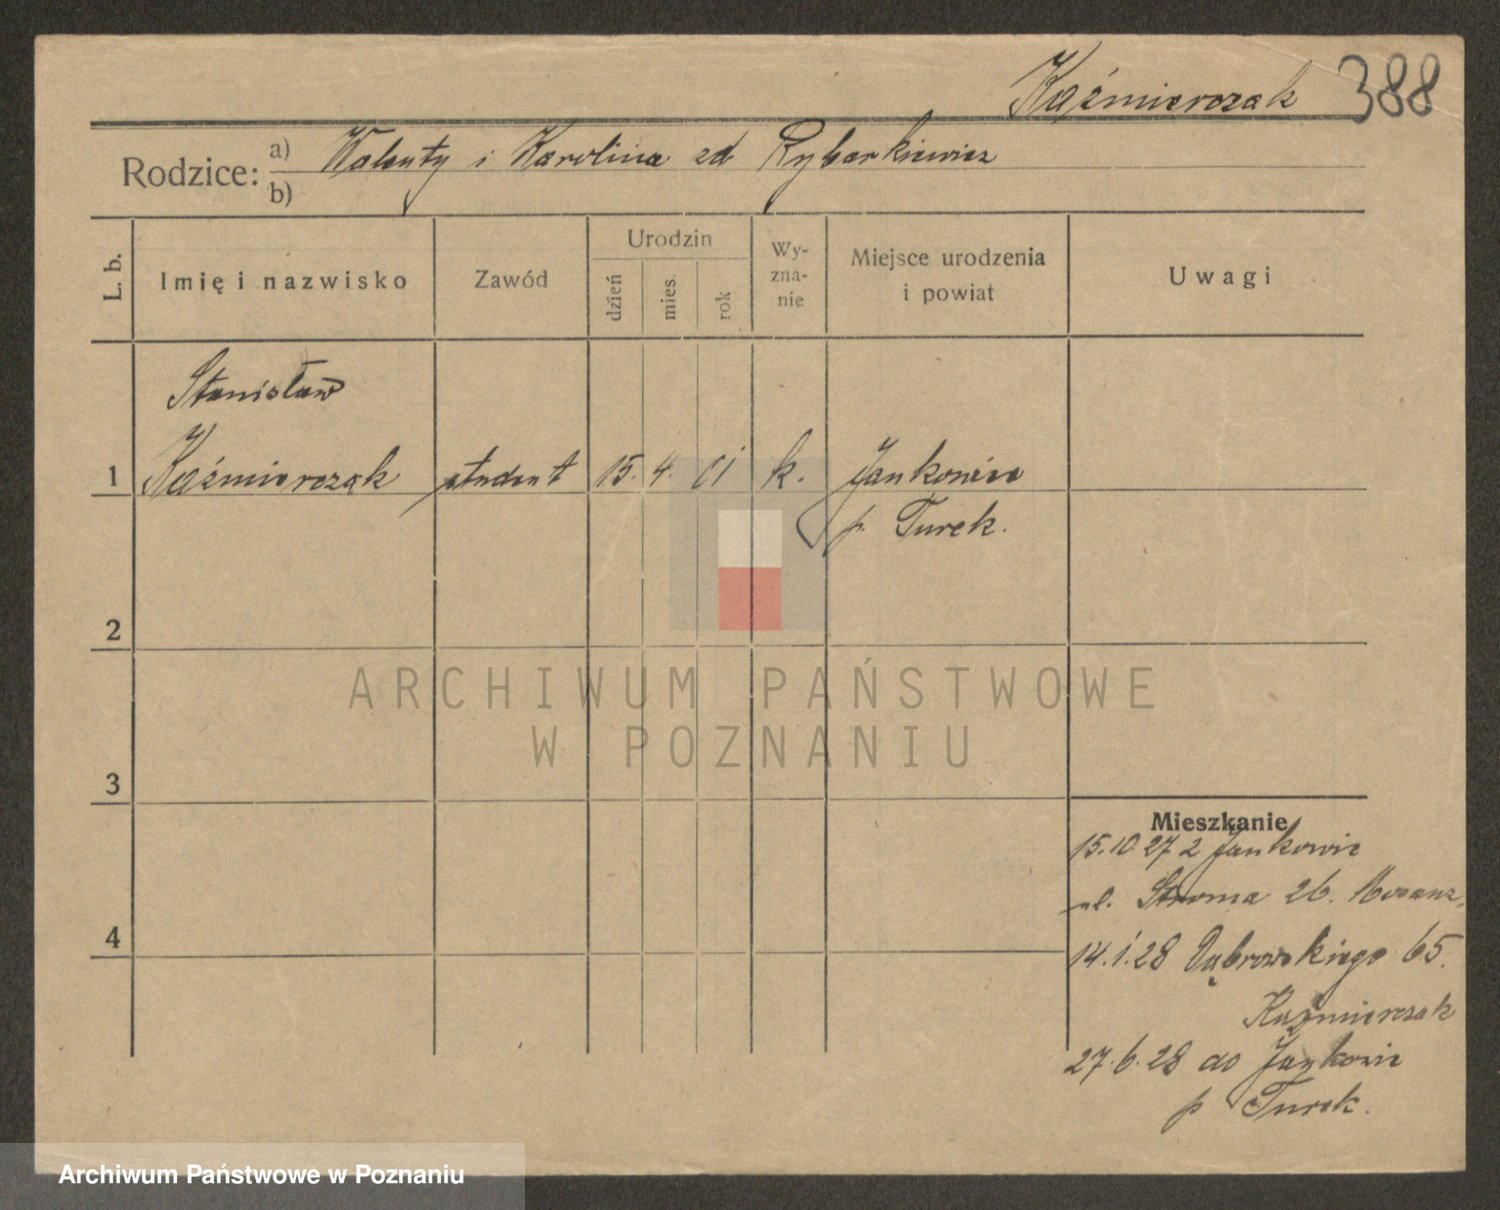 Kaźmierczak 388
Rodzice: a) Walenty i Karolina zd Rybarkiewicz
b)
L. b.
Imię i nazwisko
Zawód
Urodzin
dzień
mies.
rok
Wy-
zna-
nie
Miejsce urodzenia
i powiat
Uwagi
Stanisław
1 Kaźmierczak student 15. 4. 01 k. Jankowice
p. Turek.
2
3
4
ARCHIWUM PAŃSTWOWE
W POZNANIU
Mieszkanie
15.10.27 z Jankowic
ul. Stroma 26.
14.1.28 Dąbrowskiego 65.
Kaźmierczak
27.6.28 do Jankowic
p Turek.
Archiwum Państwowe w Poznaniu